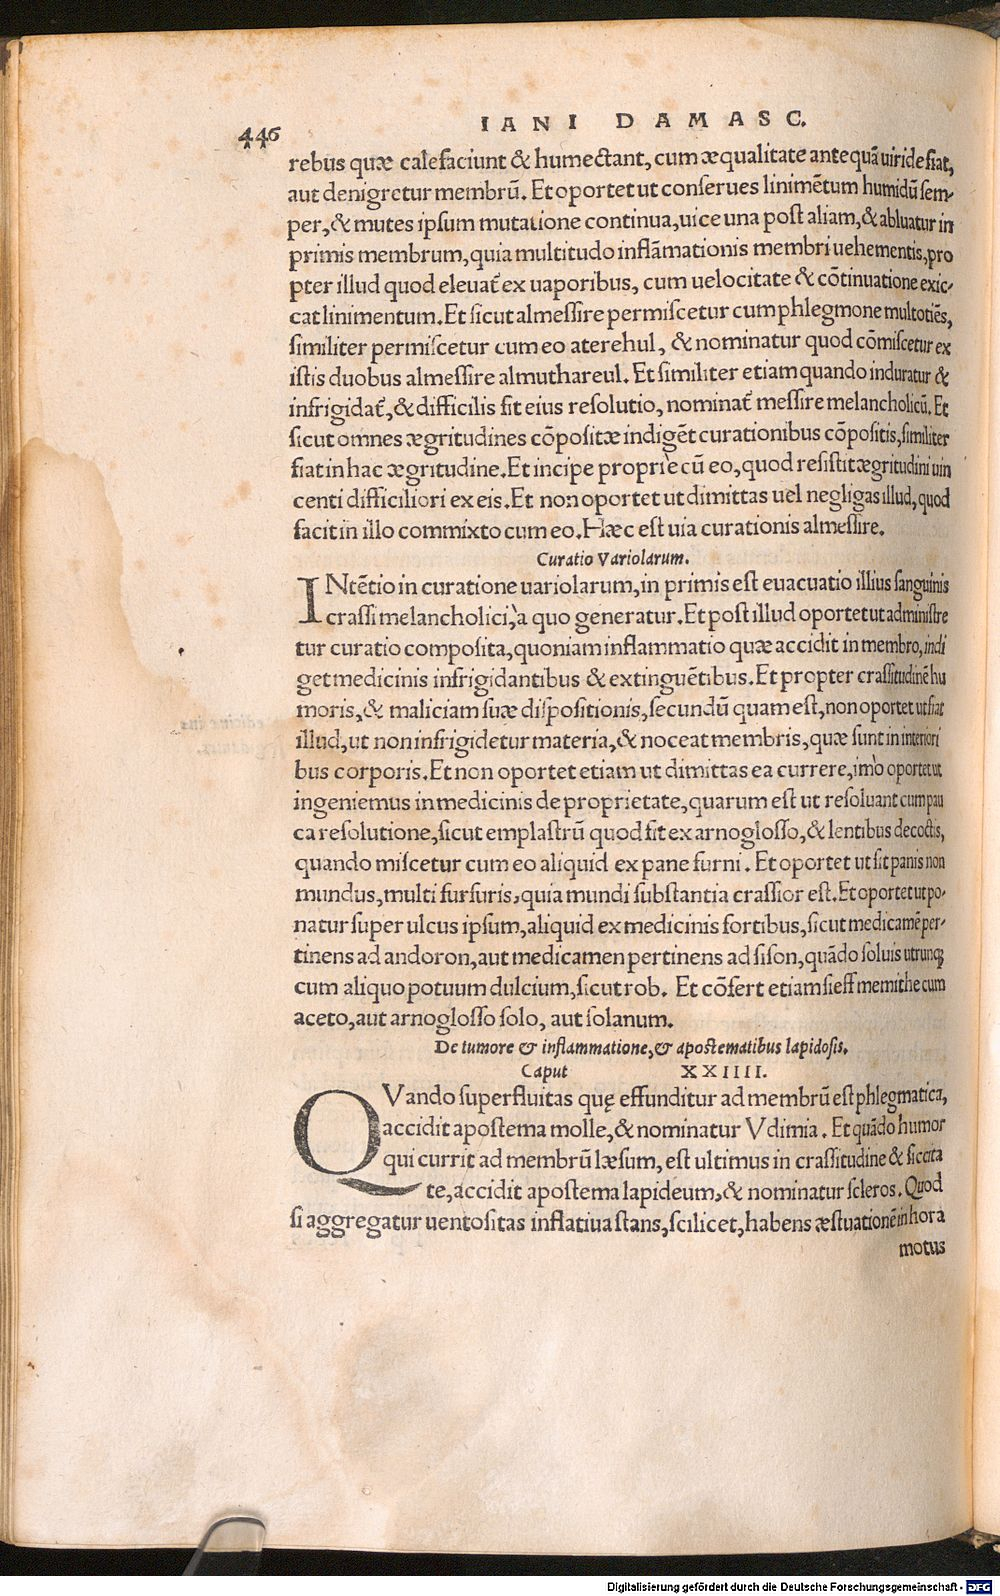 446
IANI DAMASC.
rebus quæ calefaciunt & humectant, cum æqualitate antequã uiride fiat,
aut denigretur membrũ. Et oportet ut conserues linimẽtum humidũ sem-
per, & mutes ipsum mutatione continua, uice una post aliam, & abluatur in
primis membrum, quia multitudo inflãmationis membri uehementis, pro
pter illud quod eleuat̃ ex uaporibus, cum uelocitate & cõtinuatione exic-
cat linimentum. Et sicut almessire permiscetur cum phlegmone multotiẽs,
similiter permiscetur cum eo aterehul, & nominatur quod cõmiscetur ex
istis duobus almessire almuthareul. Et similiter etiam quando induratur &
infrigidat̃, & difficilis fit eius resolutio, nominat̃ messire melancholicũ. Et
sicut omnes ægritudines cõpositæ indigẽt curationibus cõpositis, similiter
fiat in hac ægritudine. Et incipe propriè cũ eo, quod resistit ægritudini uin
centi difficiliori ex eis. Et non oportet ut dimittas uel negligas illud, quod
facit in illo commixto cum eo. Hæc est uia curationis almessire.
Curatio Variolarum.
INtẽtio in curatione uariolarum, in primis est euacuatio illius sanguinis
crassi melancholici, à quo generatur. Et post illud oportet ut administre
tur curatio composita, quoniam inflammatio quæ accidit in membro, indi
get medicinis infrigidantibus & extinguẽtibus. Et propter crassitudinẽ hu
moris, & maliciam suæ dispositionis, secundũ quam est, non oportet ut fiat
illud, ut non infrigidetur materia, & noceat membris, quæ sunt in interiori
bus corporis. Et non oportet etiam ut dimittas ea currere, imò oportet ut
ingeniemus in medicinis de proprietate, quarum est ut resoluant cum pau
ca resolutione, sicut emplastrũ quod fit ex arnoglosso, & lentibus decoctis,
quando miscetur cum eo aliquid ex pane furni. Et oportet ut sit panis non
mundus, multi furfuris, quia mundi substantia crassior est. Et oportet ut po-
natur super ulcus ipsum, aliquid ex medicinis fortibus, sicut medicamẽ per-
tinens ad andoron, aut medicamen pertinens ad sison, quãdo soluis utrunqꝫ
cum aliquo potuum dulcium, sicut rob. Et cõfert etiam sieff memithe cum
aceto, aut arnoglosso solo, aut solanum.
De tumore & inflammatione, & apostematibus lapidosis.
Caput XXIIII.
QVando superfluitas quę effunditur ad membrũ est phlegmatica,
accidit apostema molle, & nominatur Vdimia. Et quãdo humor
qui currit ad membrũ læsum, est ultimus in crassitudine & siccita
te, accidit apostema lapideum, & nominatur scleros. Quod
si aggregatur uentositas inflatiua stans, scilicet, habens æstuationẽ in hora
motus
Digitalisierung gefördert durch die Deutsche Forschungsgemeinschaft - DFG